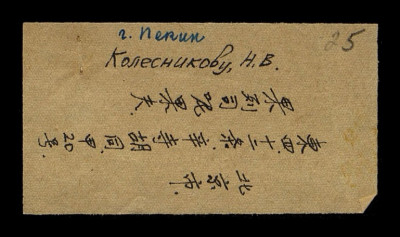 г. Пекин
25
Колесникову, Н.В.
北京市.
東四十二条辛寺胡同甲20号
果列司尼果夫